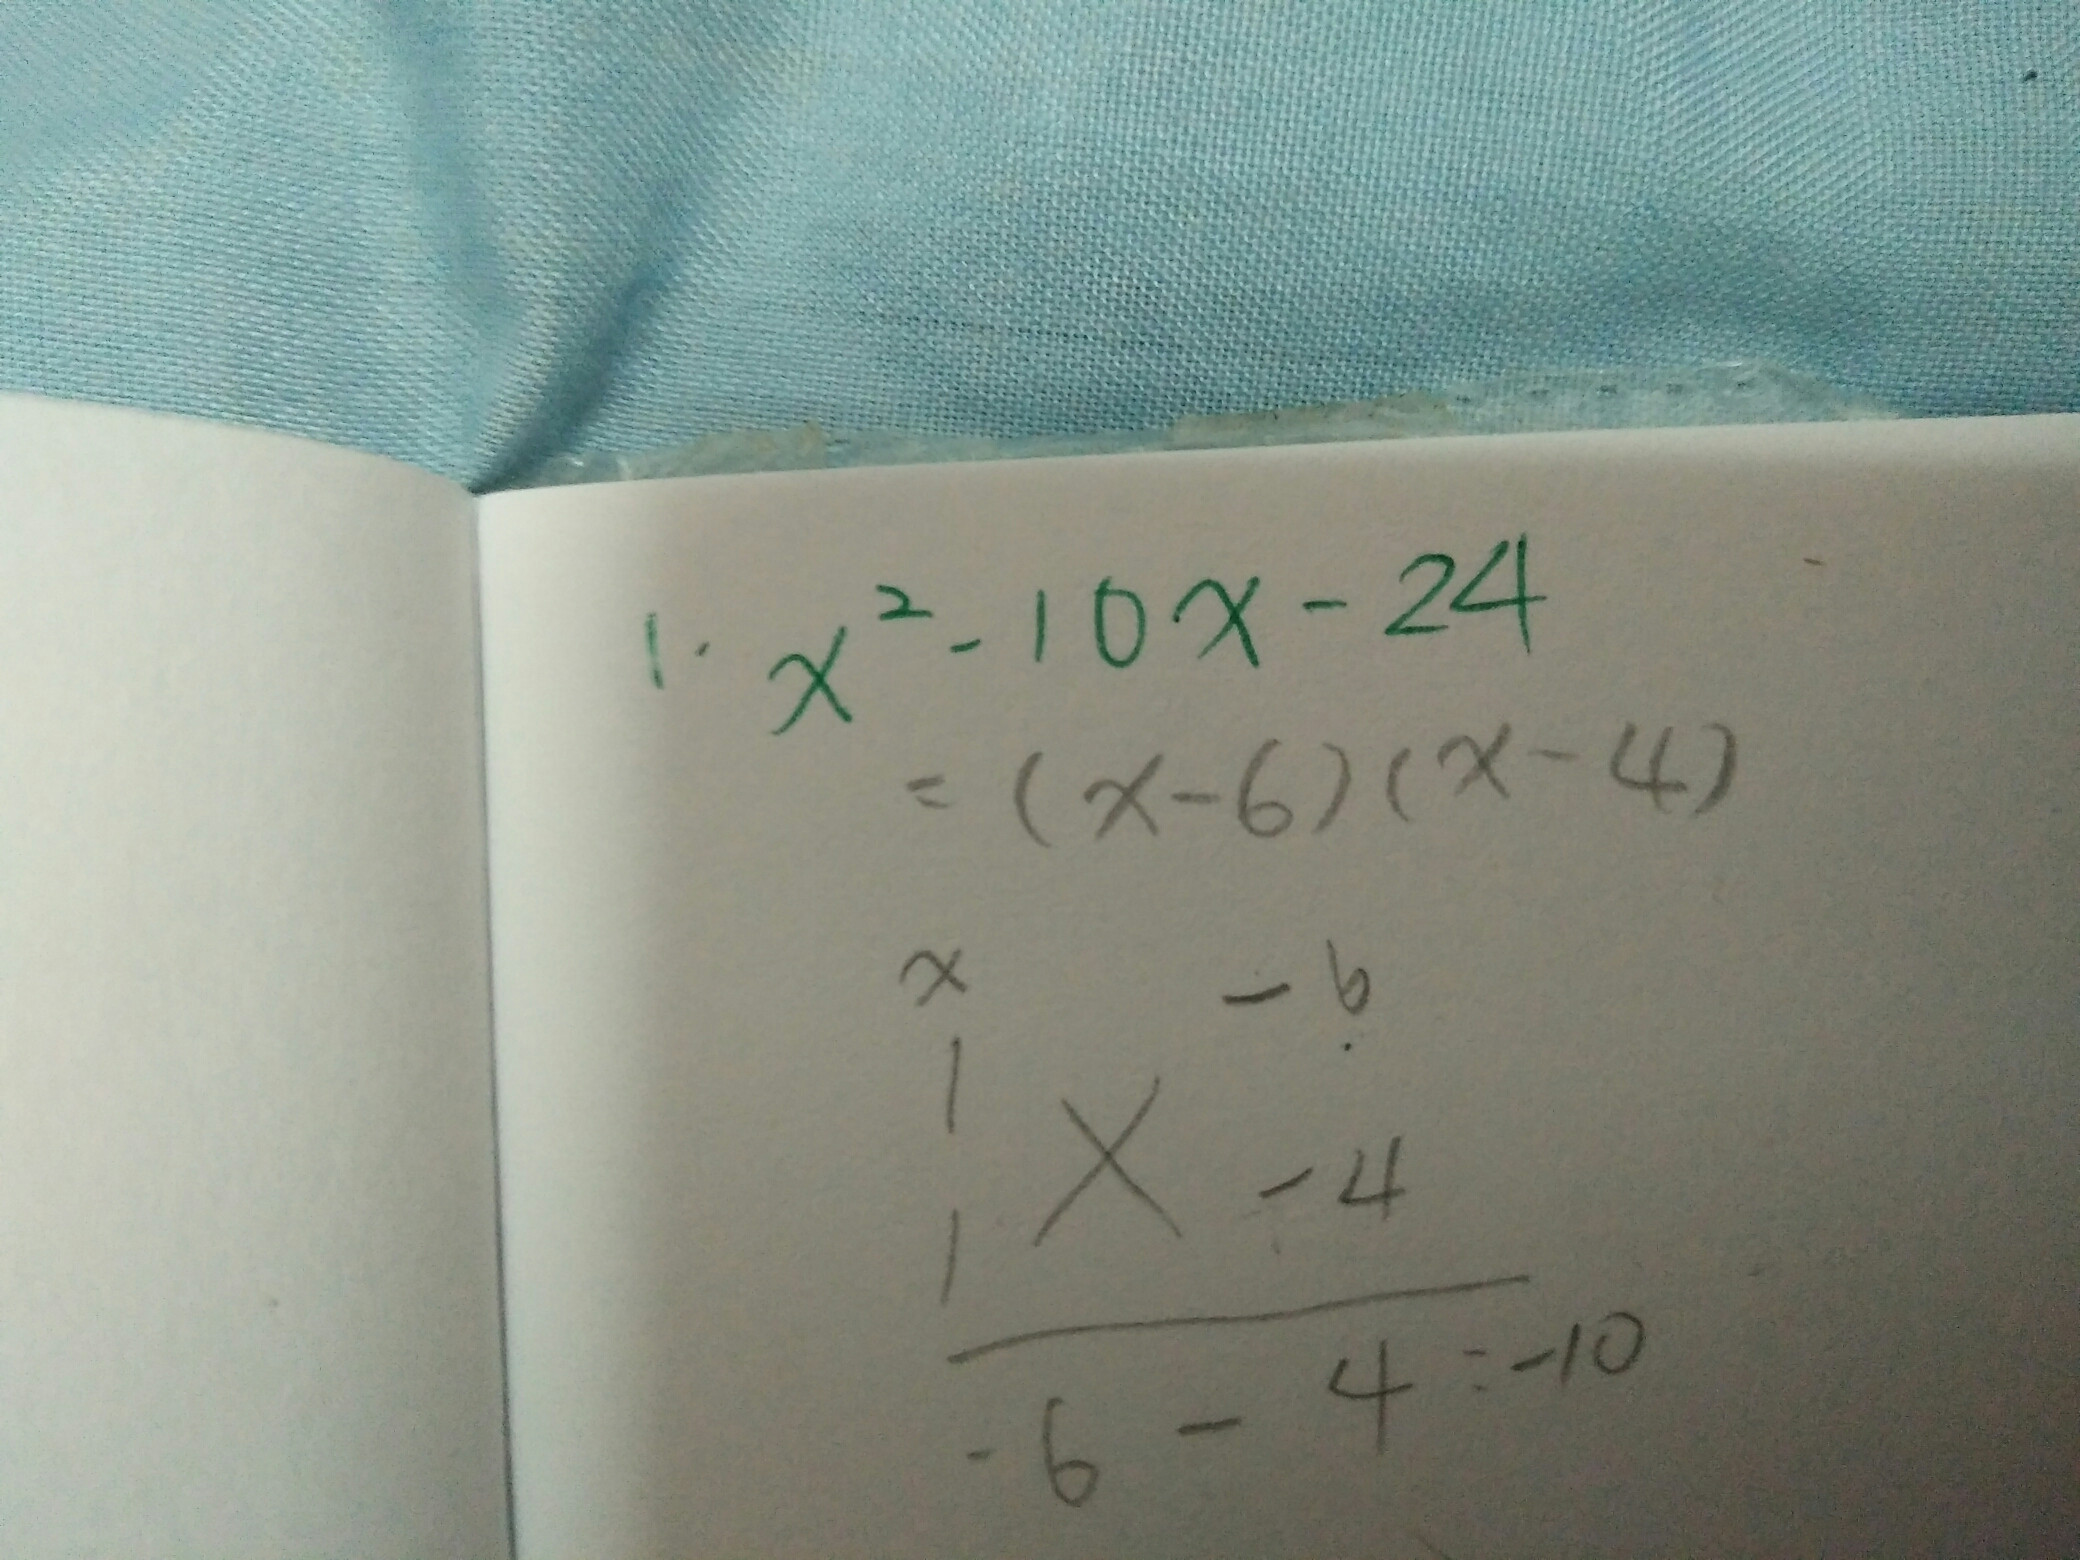 1. x² - 10x - 24
= (x-6)(x-4)
x -6
1 X -4
1
-6 - 4 = -10